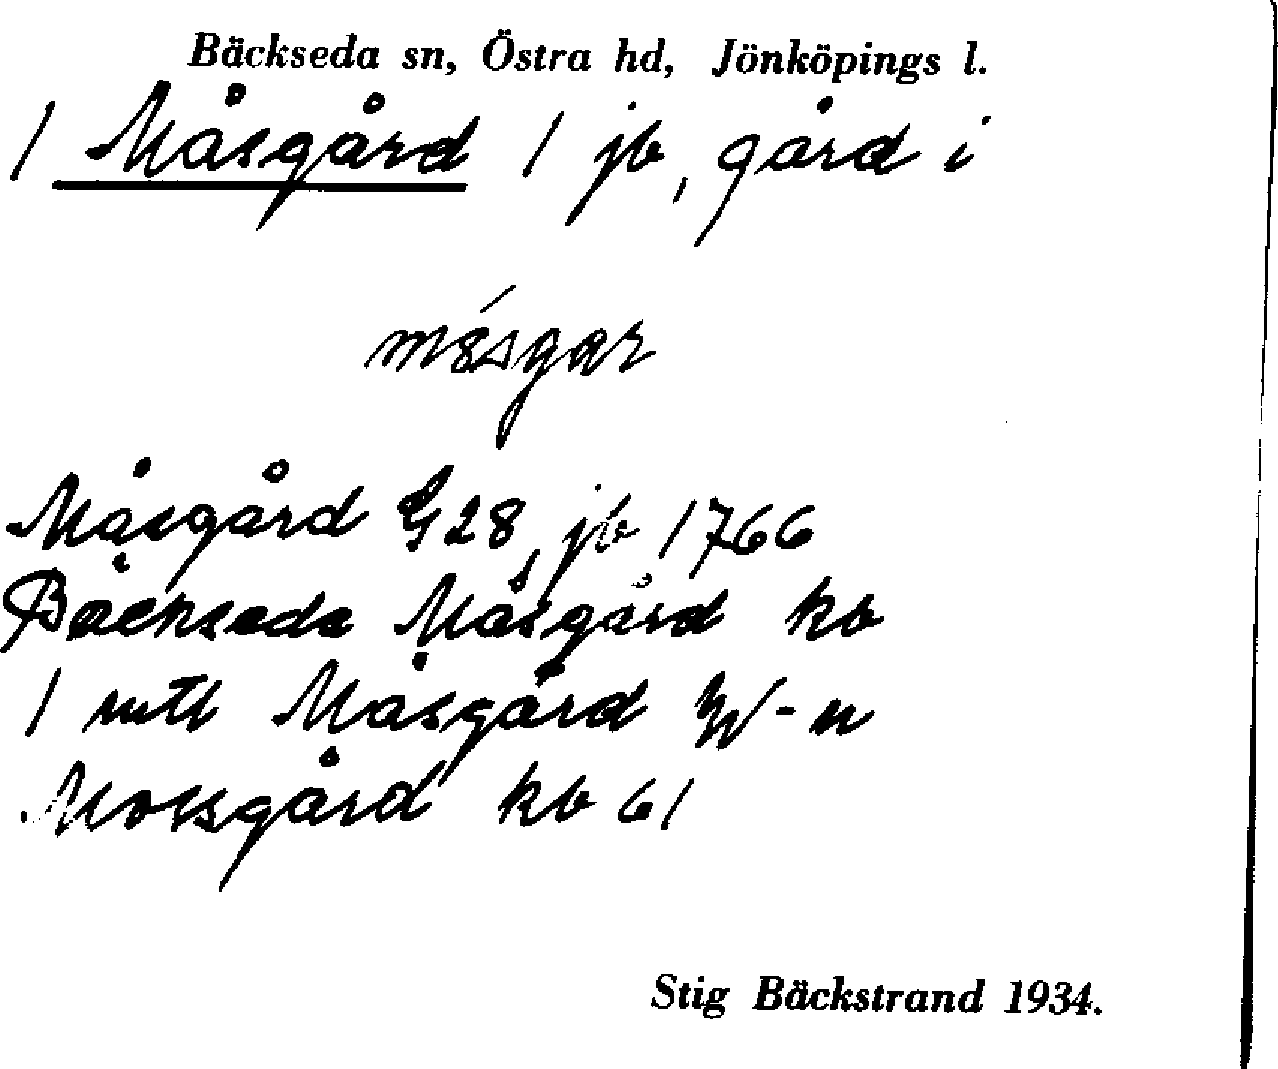 Bäckseda sn, Östra hd, Jönköpings l.
/ Måsgård / jb, gård i
Måsgård G 28, jb 1766
Bäckseda Måsgård kb
1 mtl Måsgård W-n
Mossgård kb 61
Stig Bäckstrand 1934.